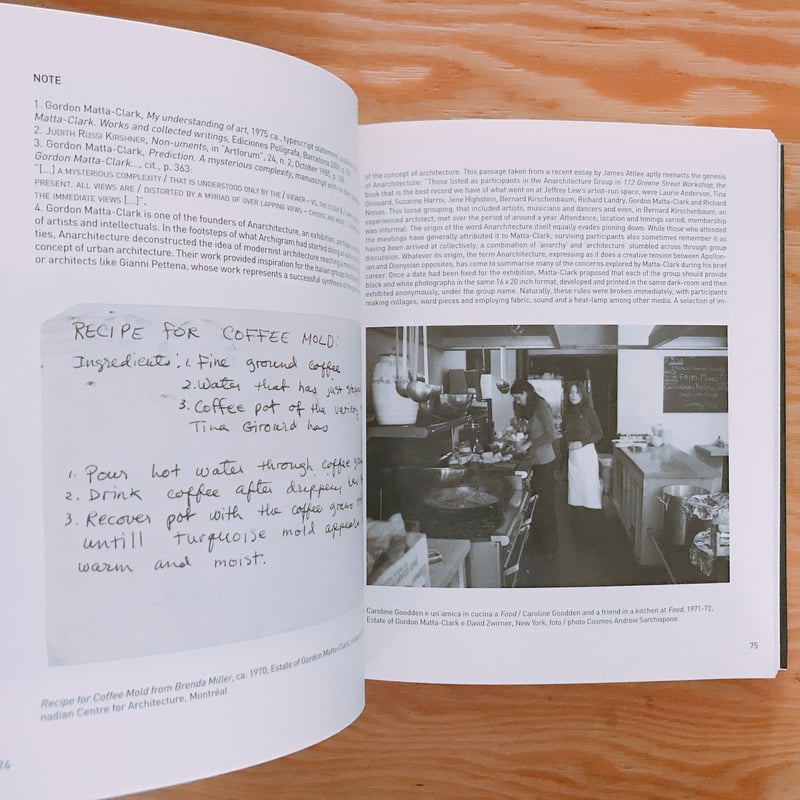 NOTE
1. Gordon Matta-Clark, My understanding of art, 1975 ca., typescript statement,
Matta-Clark. Works and collected writings, Ediciones Polígrafa, Barcelona
2. JUDITH RUSSI KIRSHNER, Non-uments, in "Artforum", 24, n. 2, October 1985, p. 108
3. Gordon Matta-Clark, Prediction. A mysterious complexity, manuscript with
Gordon Matta-Clark..., cit., p. 363:
"[...] A MYSTERIOUS COMPLEXITY / THAT IS UNDERSTOOD ONLY BY THE / VIEWER – VS. THE
PRESENT. ALL VIEWS ARE / DISTORTED BY A MYRIAD OF OVER LAPPING VIEWS – CHOOSE AND
THE IMMEDIATE VIEWS [...]".
4. Gordon Matta-Clark is one of the founders of Anarchitecture, an exhibition,
of artists and intellectuals. In the footsteps of what Archigram had started doing
ties, Anarchitecture deconstructed the idea of modernist architecture reaching
concept of urban architecture. Their work provided inspiration for the Italian groups
or architects like Gianni Pettena, whose work represents a successful synthesis of
RECIPE FOR COFFEE MOLD:
Ingredients: 1. Fine ground coffee
2. Water that has just
3. Coffee pot of the variety
Tina Girourd has
1. Pour hot water through coffee
2. Drink coffee after dripping
3. Recover pot with the coffee grounds
untill turquoise mold appears
warm and moist.
Recipe for Coffee Mold from Brenda Miller, ca. 1970, Estate of Gordon Matta-Clark,
nadian Centre for Architecture, Montréal
74
of the concept of architecture. This passage taken from a recent essay by James Attlee aptly reenacts the genesis
of Anarchitecture: "Those listed as participants in the Anarchitecture Group in 112 Greene Street Workshop, the
book that is the best record we have of what went on at Jeffrey Lew's artist-run space, were Laurie Anderson, Tina
Girouard, Suzanne Harris, Jene Highstein, Bernard Kirschenbaum, Richard Landry, Gordon Matta-Clark and Richard
Nonas. This loose grouping, that included artists, musicians and dancers and even, in Bernard Kirschenbaum, an
experienced architect, met over the period of around a year. Attendance, location and timings varied; membership
was informal. The origin of the word Anarchitecture itself equally evades pinning down. While those who attended
the meetings have generally attributed it to Matta-Clark, surviving participants also sometimes remember it as
having been arrived at collectively; a combination of 'anarchy' and 'architecture' stumbled across through group
discussion. Whatever its origin, the term Anarchitecture, expressing as it does a creative tension between Apollon-
ian and Dionysian opposites, has come to summarise many of the concerns explored by Matta-Clark during his brief
career. Once a date had been fixed for the exhibition, Matta-Clark proposed that each of the group should provide
black and white photographs in the same 16 x 20 inch format, developed and printed in the same dark-room and then
exhibited anonymously, under the group name. Naturally, these rules were broken immediately, with participants
making collages, word pieces and employing fabric, sound and a heat-lamp among other media. A selection of im-
Caroline Goodden e un'amica in cucina a Food / Caroline Goodden and a friend in a kitchen at Food, 1971-72,
Estate of Gordon Matta-Clark e David Zwirner, New York, foto / photo Cosmos Andrew Sarchiapone
75